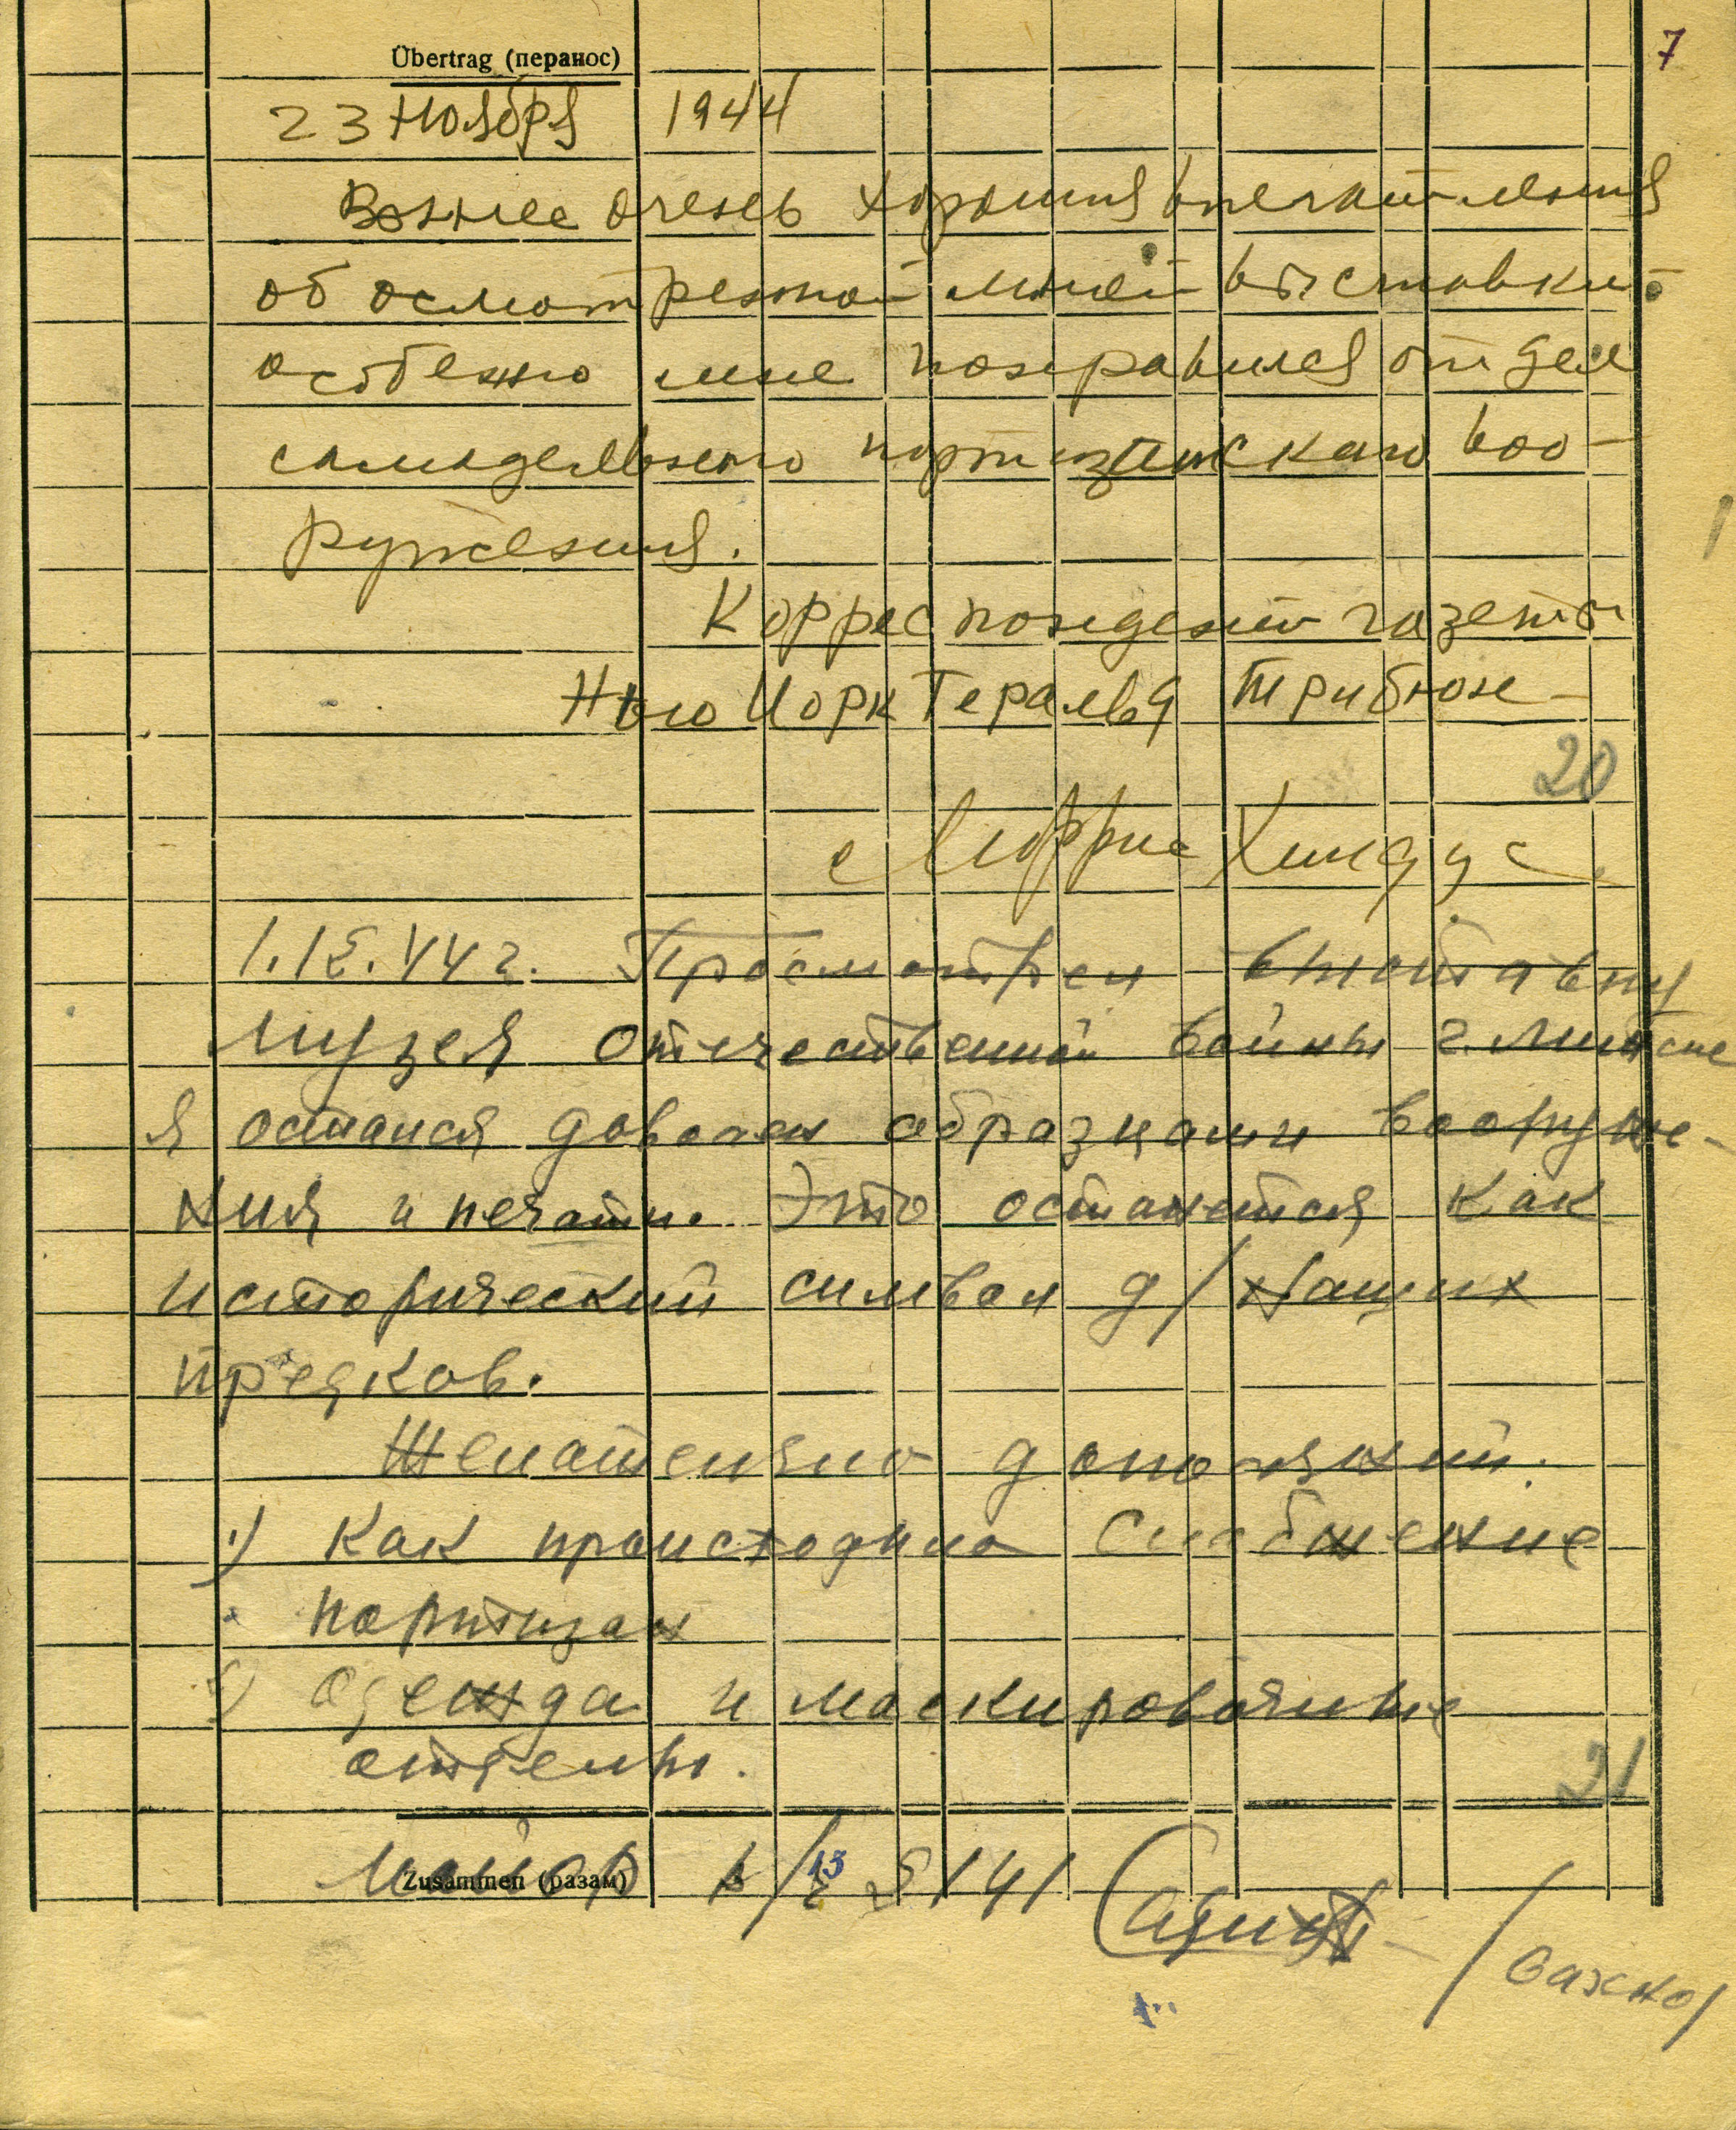 7
Übertrag (перанос)
23 Ноября 1944
очень хорошия впечатления
об осмотреной мной выставки.
особенно мне понравился отдел
самодельного партизанскаго воо-
ружения.
Корреспондент газеты
Нью Иорк Геральд Трибюне
20
Моррис Хиндус
1.IX.44 г. Просмотрел выставку
Музея отечественной войны г. Минске
Я остался доволен образцами вооруже-
ния и печати. Это останется как
исторический символ д/ наших
предков.
Желательно
1) Как происходило снабжение
партизан
2) Одежда и маскировочные
21
Майор 13 141
Zusammen (разам)
/Сажко/